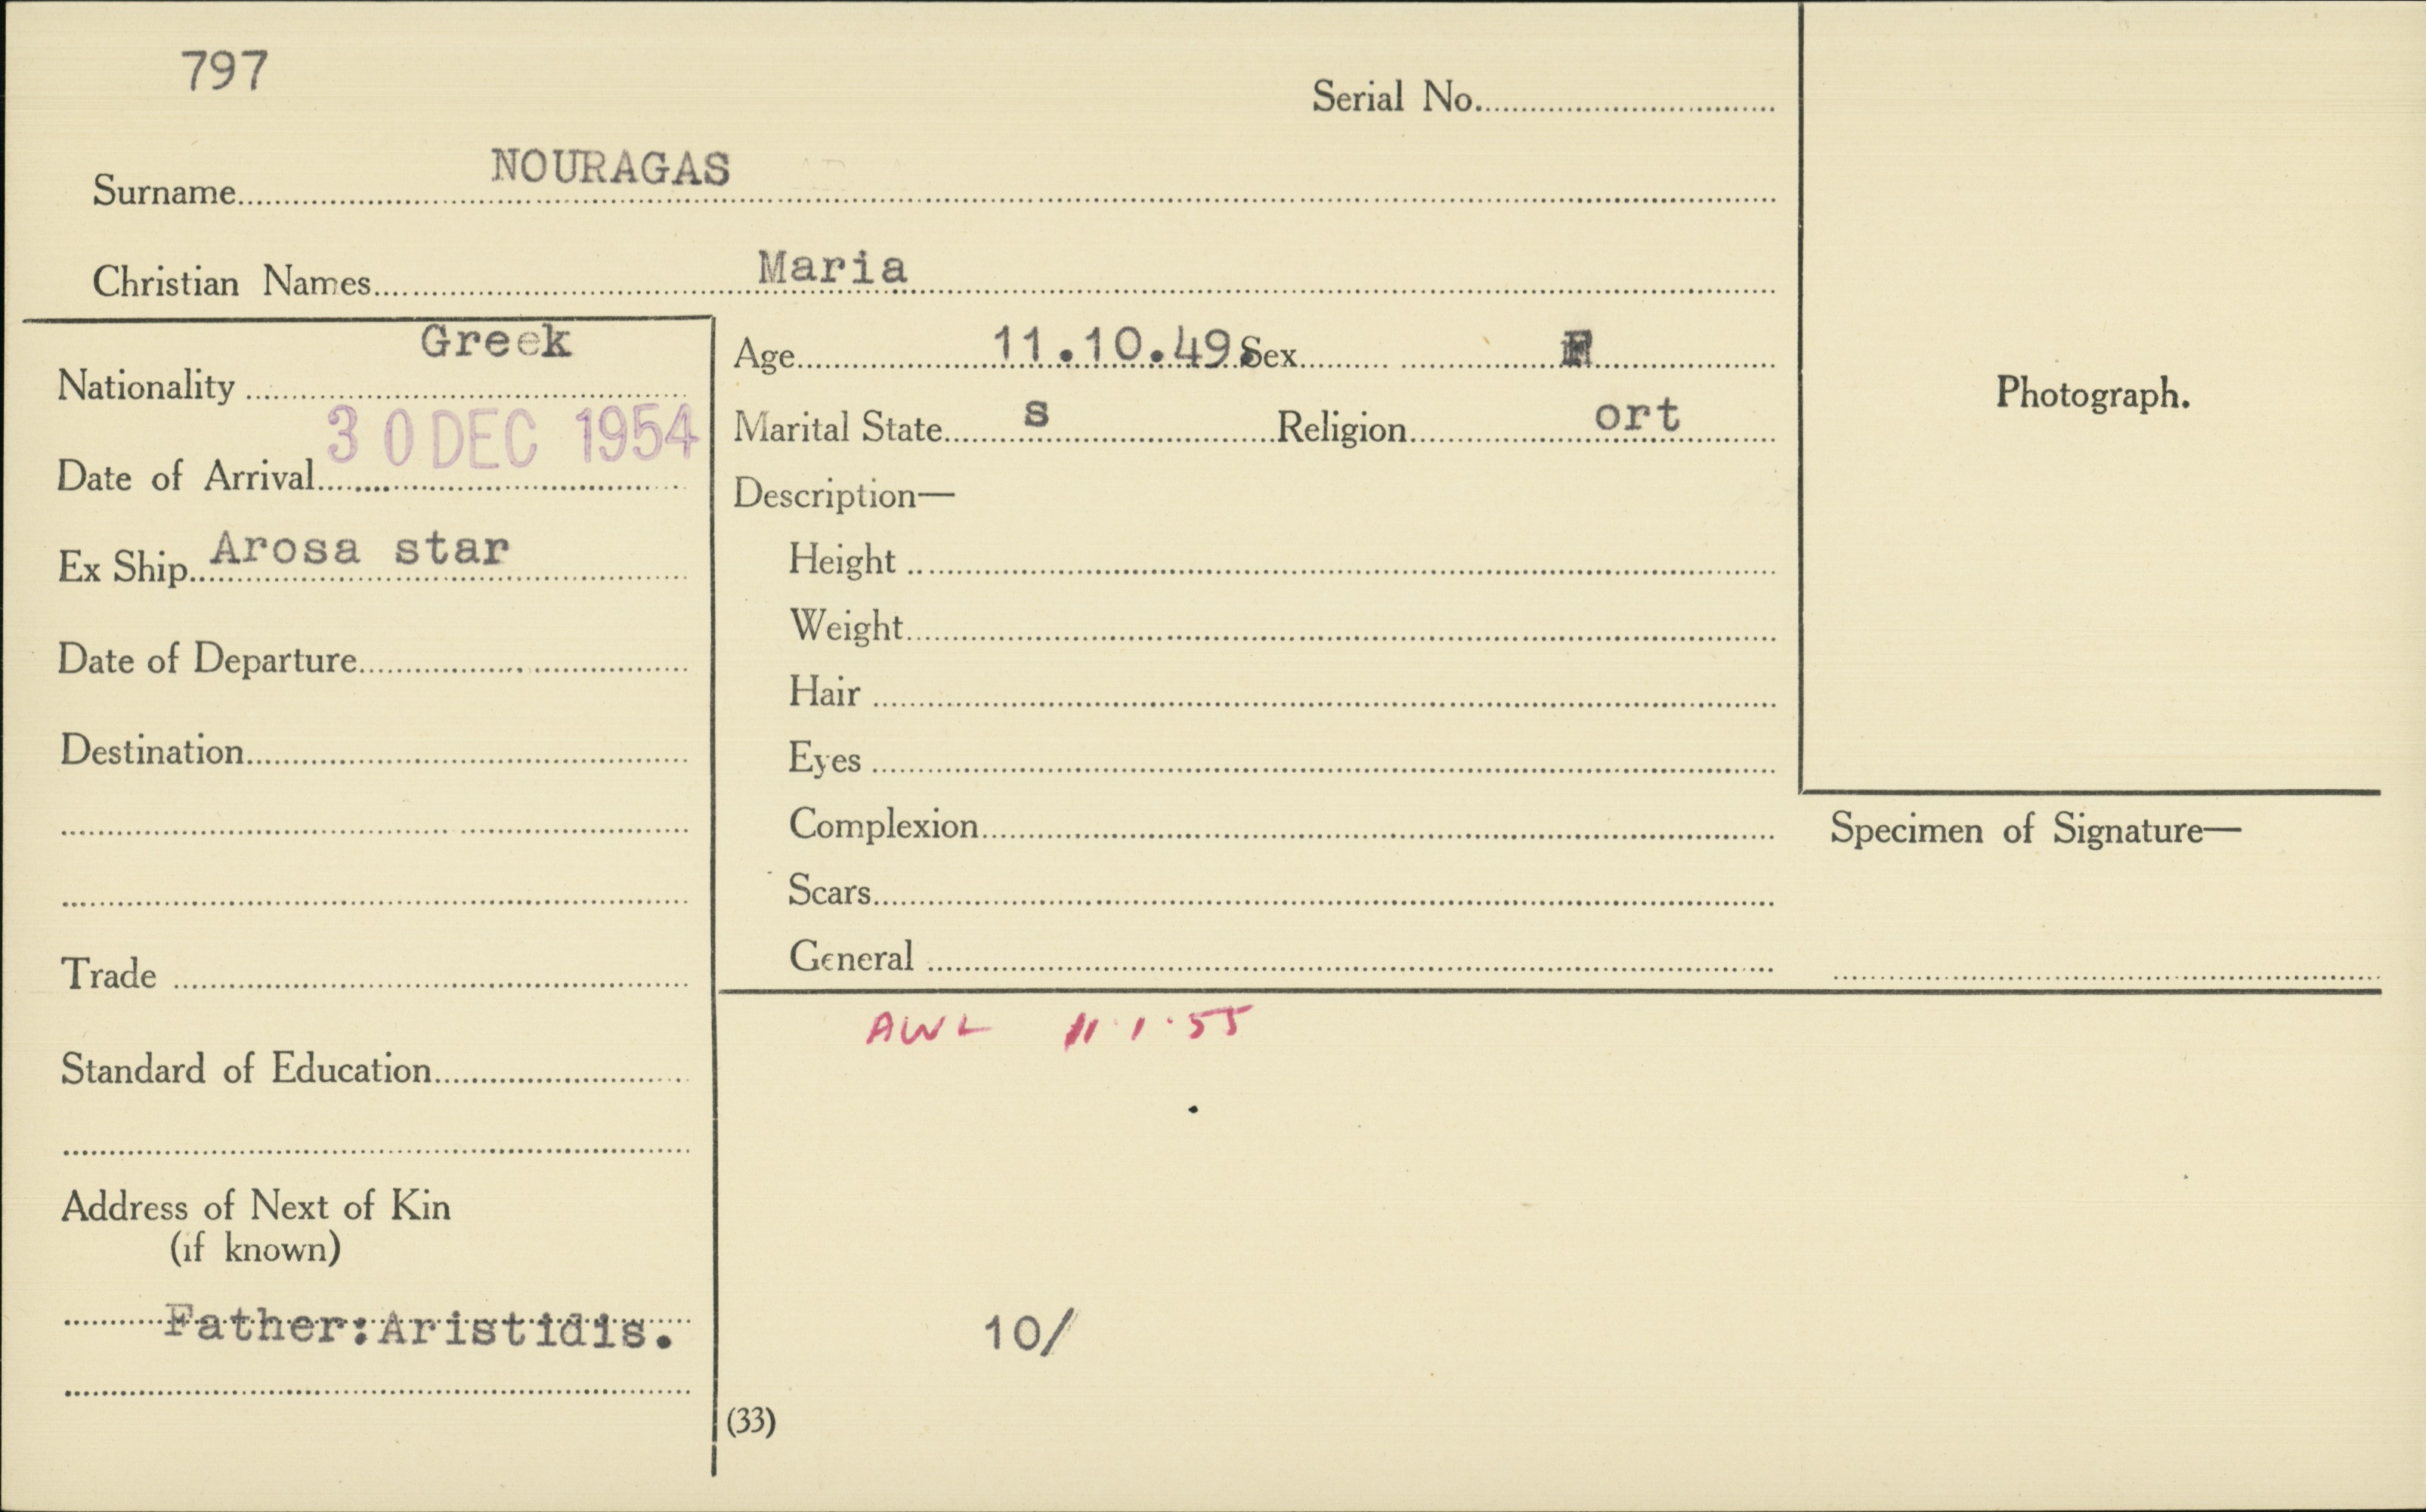 797
Serial No.
Surname NOURAGAS
Christian Names Maria
Nationality Greek
Date of Arrival 30 DEC 1954
Ex Ship Arosa star
Date of Departure
Destination
Trade
Standard of Education
Address of Next of Kin
(if known)
Father:Aristidis.
Age 11.10.49. Sex F
Marital State s Religion ort
Description—
Height
Weight
Hair
Eyes
Complexion
Scars
General
Photograph.
Specimen of Signature—
AWL 11.1.55
10/
(33)